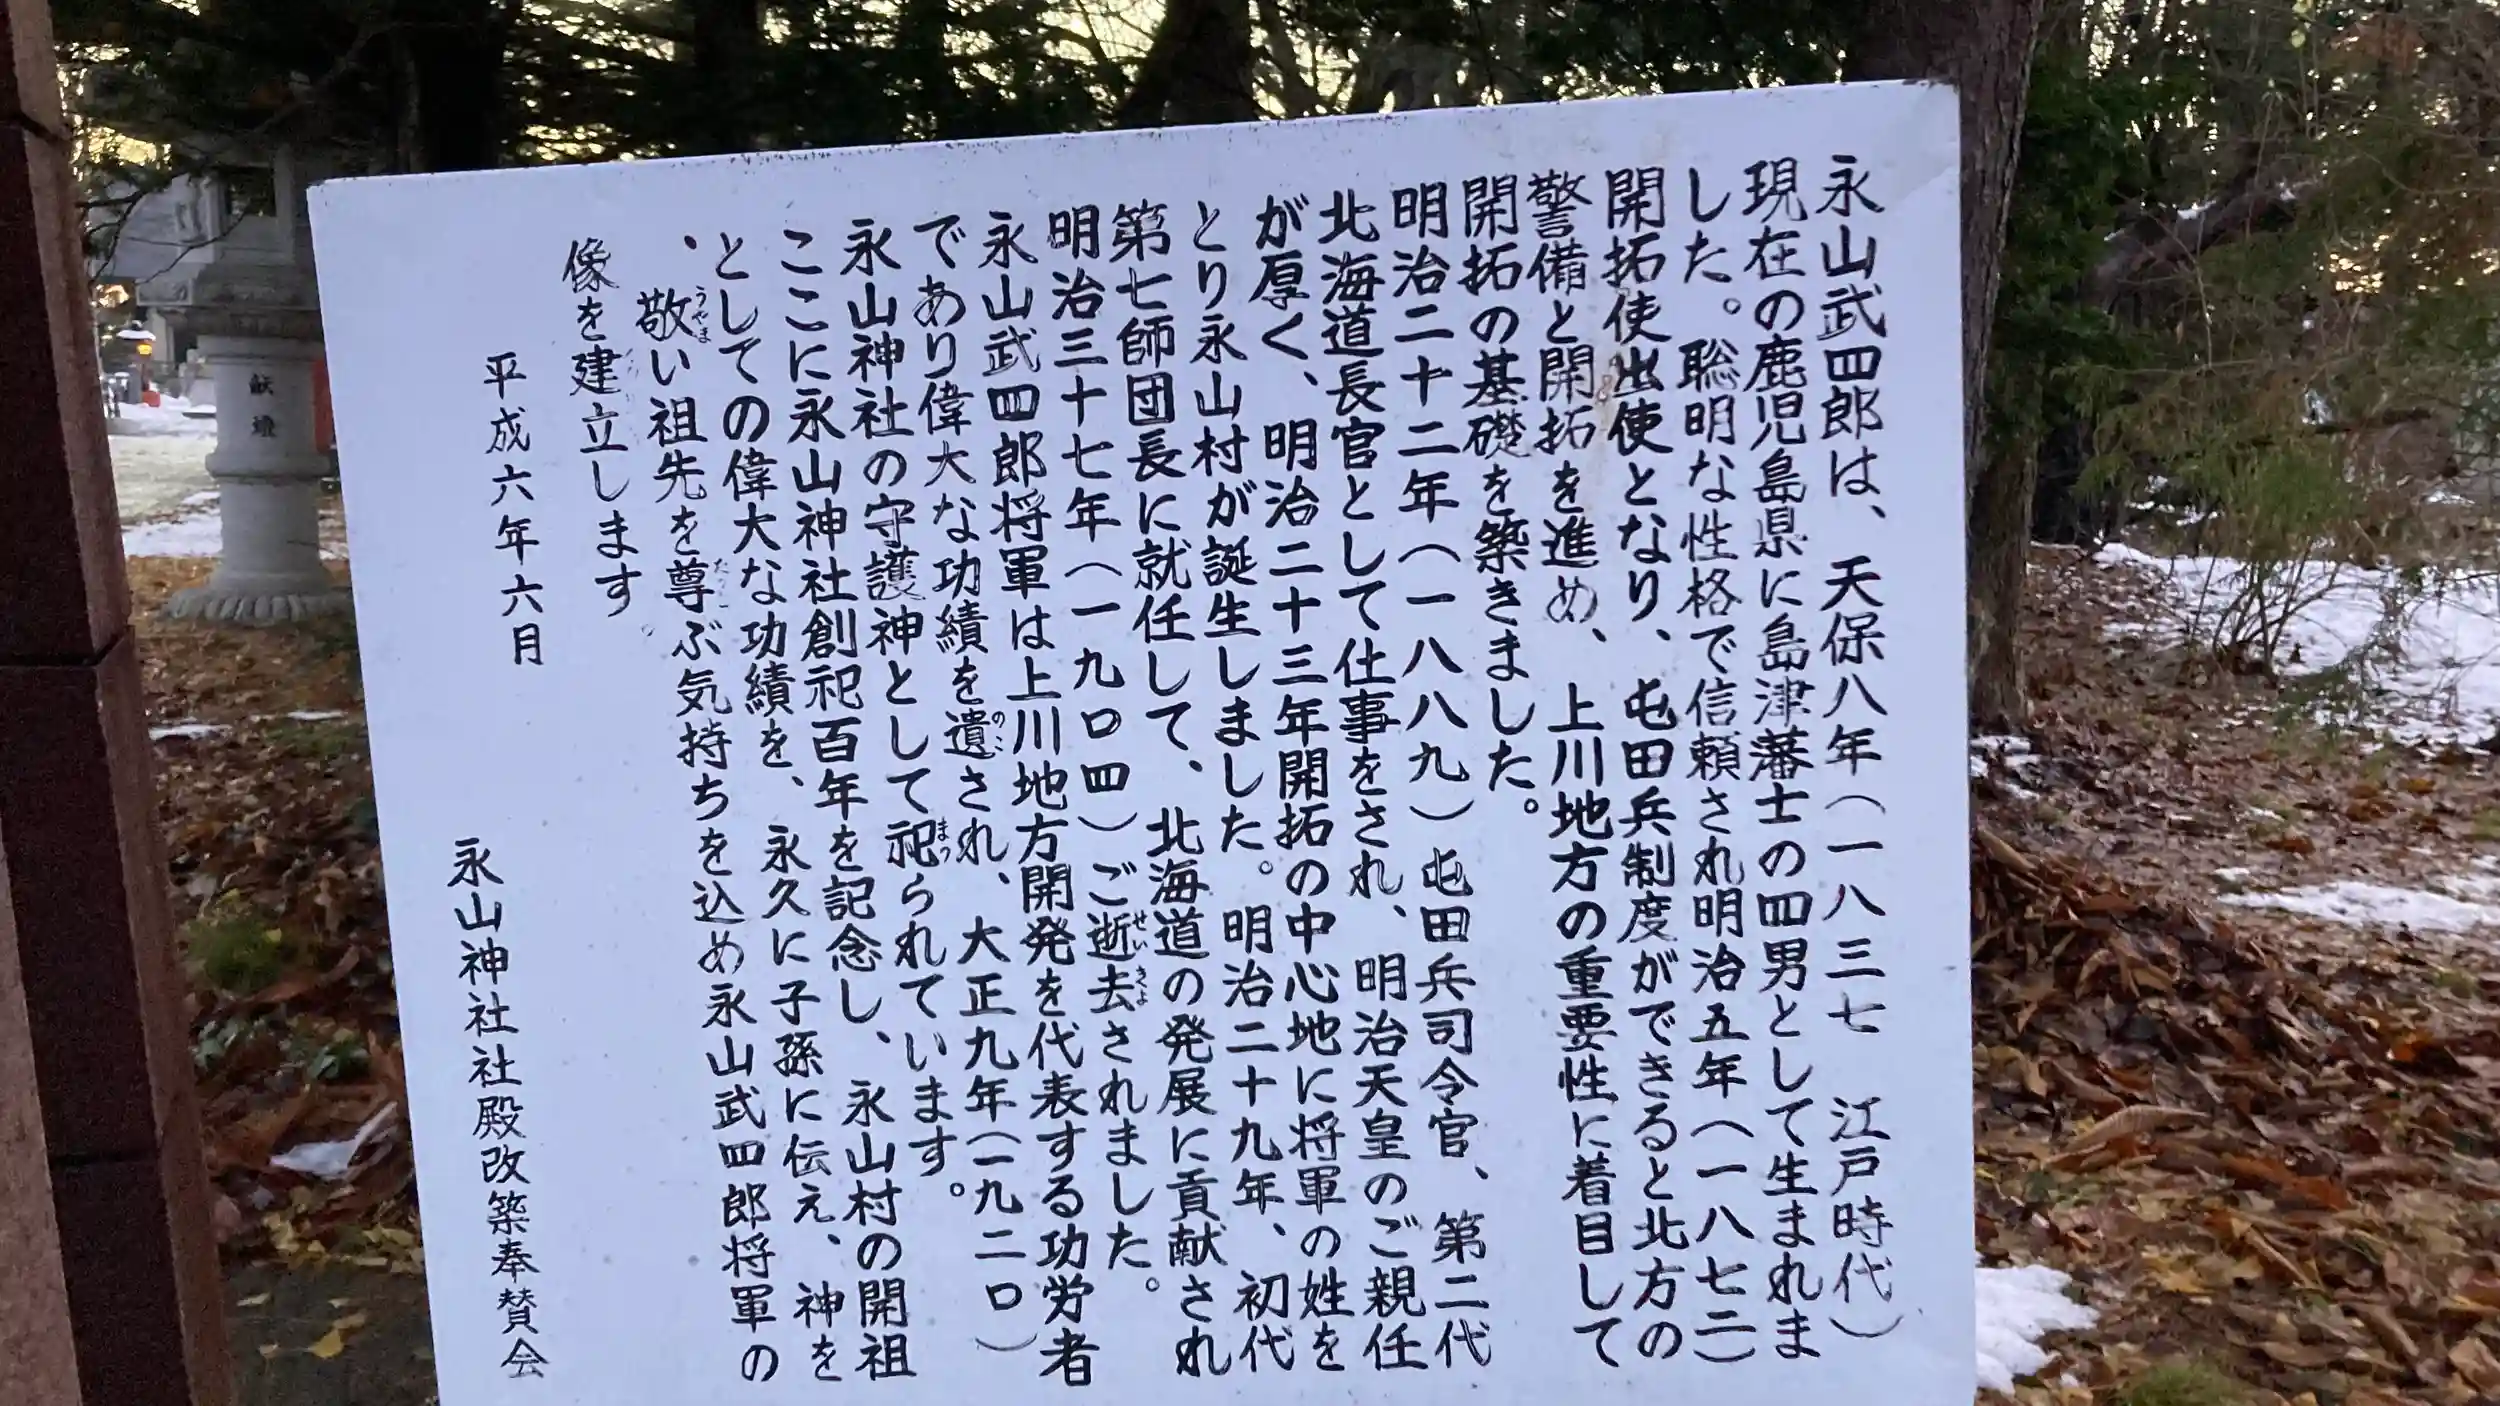 永山武四郎は、天保八年（一八三七　江戸時代）
現在の鹿児島県に島津藩士の四男として生まれま
した。聡明な性格で信頼され明治五年（一八七二）
開拓使出使となり、屯田兵制度ができると北方の
警備と開拓を進め、上川地方の重要性に着目して
開拓の基礎を築きました。
明治二十二年（一八八九）屯田兵司令官、第二代
北海道長官として仕事をされ、明治天皇のご親任
が厚く、明治二十三年開拓の中心地に将軍の姓を
とり永山村が誕生しました。明治二十九年、初代
第七師団長に就任して、北海道の発展に貢献され
明治三十七年（一九〇四）ご逝去されました。
せいきよ
永山武四郎将軍は上川地方開発を代表する功労者
であり偉大な功績を遺され、大正九年（一九二〇）
のこ
永山神社の守護神として祀られています。
まつ
ここに永山神社創祀百年を記念し、永山村の開祖
としての偉大な功績を、永久に子孫に伝え、神を
敬い祖先を尊ぶ気持ちを込め永山武四郎将軍の
うやま
像を建立します
平成六年六月
永山神社社殿改築奉賛会
献燈